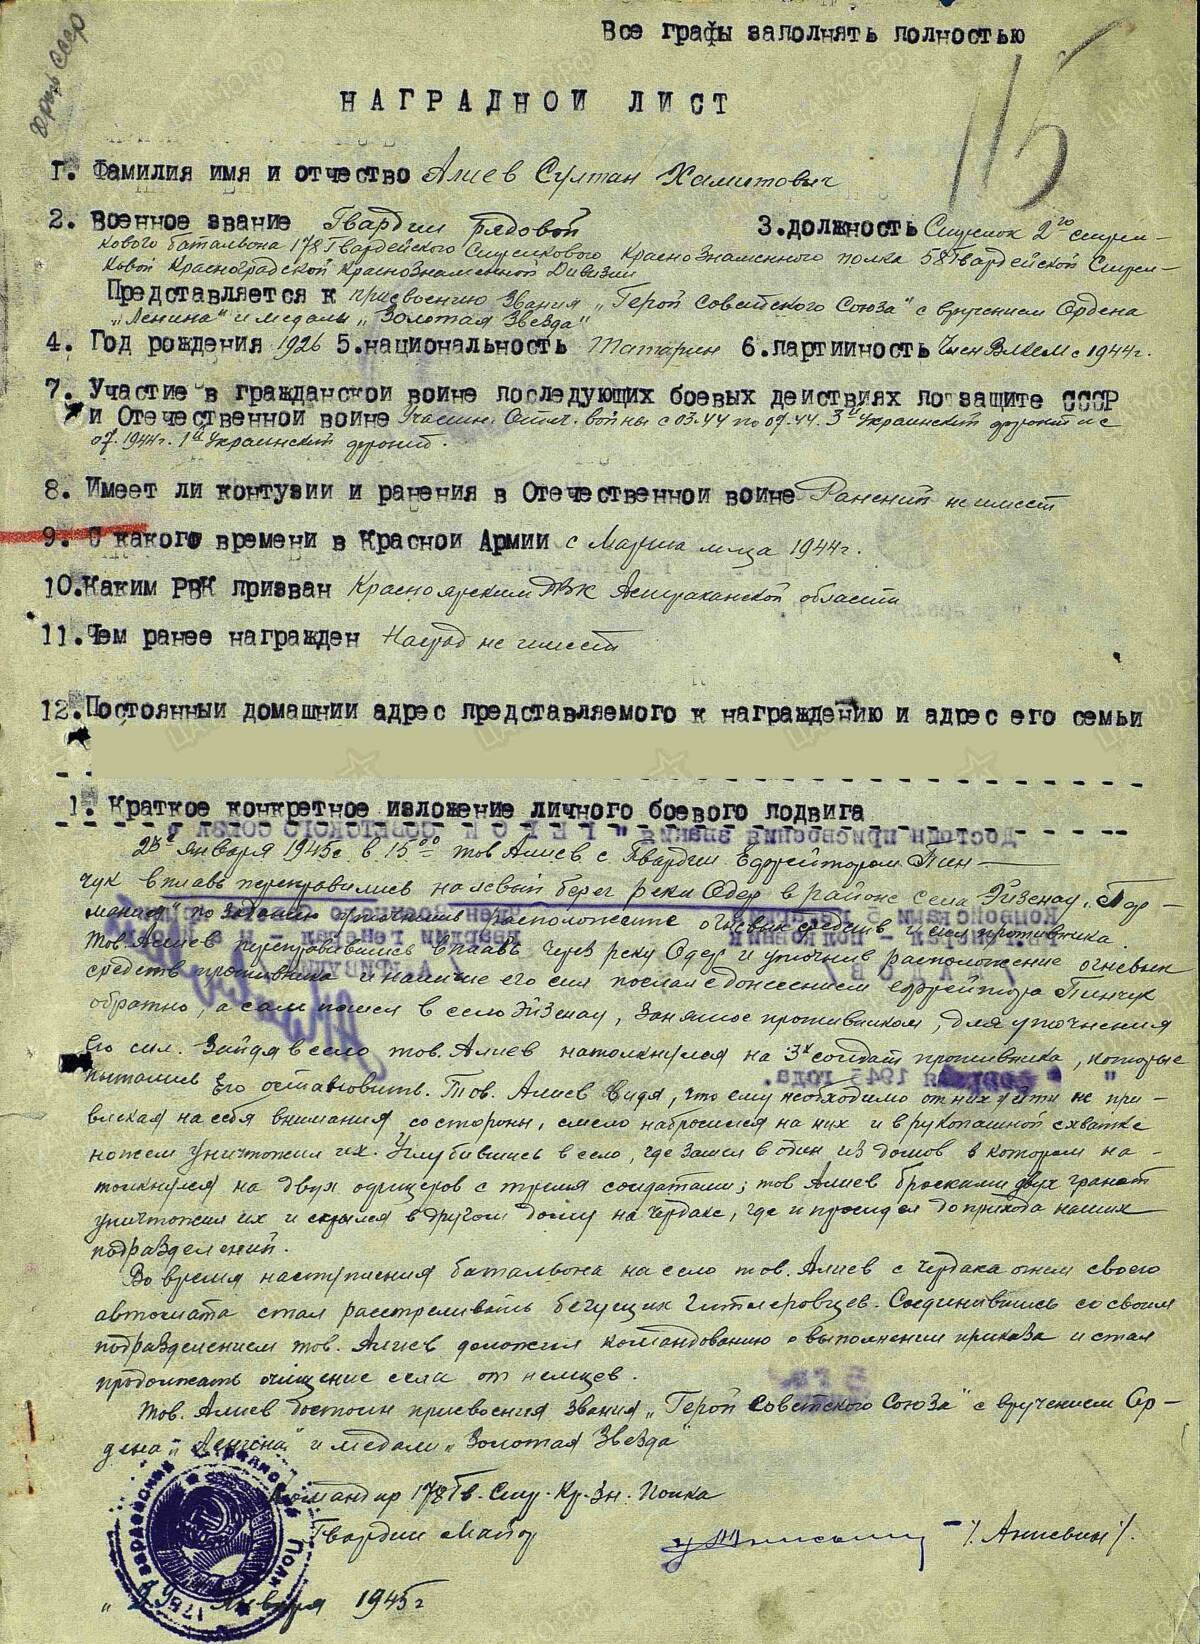 Все графы заполнять полностью
115
НАГРАДНОЙ ЛИСТ
1. Фамилия имя и отчество Алиев Султан Хамитович
2. Военное звание Гвардии рядовой 3. должность Стрелок 2го стрел-
кового батальона 178 Гвардейского Стрелкового Краснознаменного полка 58 Гвардейской Стрел-
ковой Красноградской Краснознаменной Дивизии
Представляется к присвоению звания „Герой Советского Союза" с вручением Ордена
„Ленина" и медаль „Золотая Звезда"
4. Год рождения 1926 5. национальность Татарин 6. партийность Член ВЛКСМ с 1944г.
7. Участие в гражданской войне последующих боевых действиях по защите СССР
и Отечественной войне Участн. Отеч. войны с 03.44 по 07.44. 3й Украинский фронт и с
07.1944г. 1й Украинский фронт.
8. Имеет ли контузии и ранения в Отечественной войне Ранений не имеет
9. С какого времени в Красной Армии с Марта м-ца 1944г.
10. Каким РВК призван Красноярским РВК Астраханской области
11. Чем ранее награжден Наград не имеет
12. Постоянный домашний адрес представляемого к награждению и адрес его семьи
1. Краткое конкретное изложение личного боевого подвига
января 1945г. в 15 00 тов Алиев с Гвардии Ефрейтором Пин-
чук вплавь переправились на левый берег реки Одер в районе села Эйзенау „Гер-
мания" по заданию уточнить расположение огневых средств и сил противника.
Тов. Алиев переправившись вплавь через реку Одер и уточнив расположение огневых
средств противника и наличие его сил послал с донесением ефрейтора Пинчук
обратно, а сам пошел в село Эйзенау, занятое противником, для уточнения
его сил. Зайдя в село тов. Алиев натолкнулся на 3х солдат противника, которые
пытались его остановить. Тов. Алиев видя, что ему необходимо от них уйти не при-
влекая на себя внимания со стороны, смело набросился на них и в рукопашной схватке
ножем уничтожил их. Углубившись в село, где зашел в один из домов в котором на-
толкнулся на двух офицеров с тремя солдатами; тов Алиев бросками двух гранат
уничтожил их и скрылся в другом дому на чердаке, где и просидел до прихода наших
подразделений.
Во время наступления батальона на село тов. Алиев с чердака огнем своего
автомата стал расстреливать бегущих гитлеровцев. Соединившись со своим
подразделением тов. Алиев доложил командованию о выполнении приказа и стал
продолжать очищение села от немцев.
Тов. Алиев достоин присвоения звания „Герой Советского Союза" с вручением Ор-
дена „Ленина" и медали „Золотая Звезда"
Командир 178 Гв. Стр. Кр. Зн. Полка
Гвардии Майор
Января 1945г